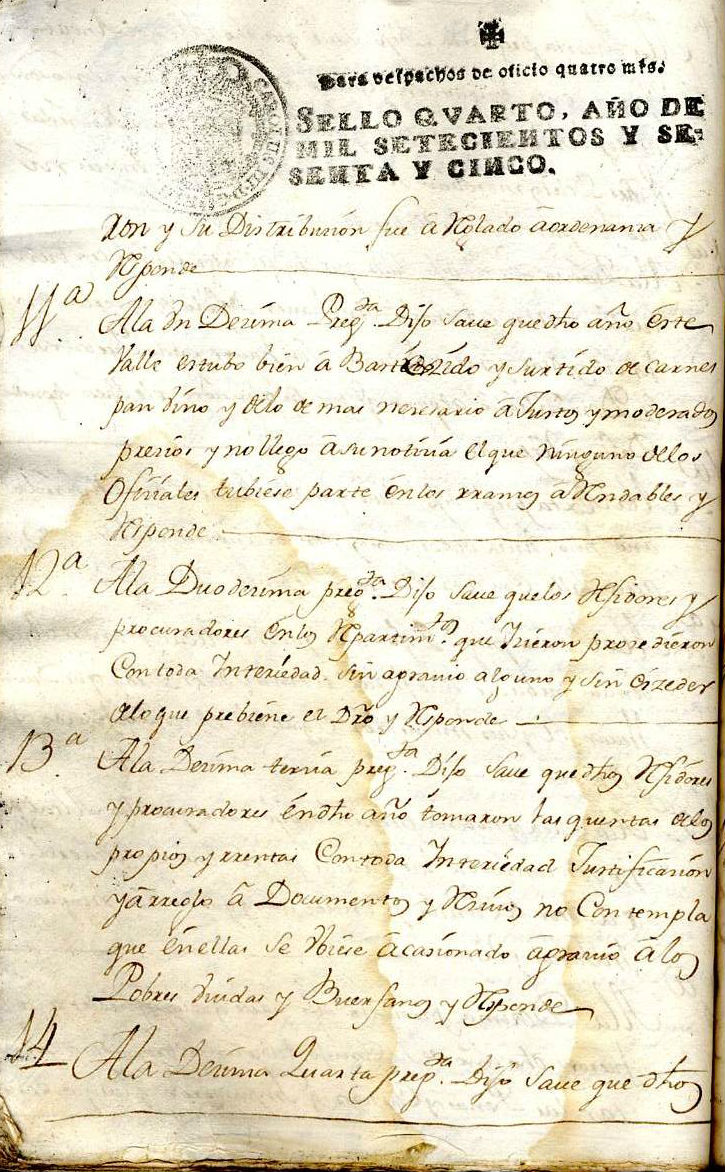 Para despachos de oficio quatro mrs.
SELLO QVARTO, AÑO DE
MIL SETECIENTOS Y SE-
SENTA Y CINCO.
CAROLUS III D G
xon y su Distribuzion fue á Rglado á ordenanza y
Rsponde
11ª
Ala Vn Dezima Pregta. Dijo save que dho año este
Valle estubo bien á Bastezido y surtido de carnes
pan vino y delo demas nezesario á Justos y moderados
prezios y no llego á su notizia el que ninguno de los
Ofiziales tubiese parte en los rramos á Rendables y
Rsponde
12ª
Ala Duodezima pregta. Dijo save que los Rejidores y
procuradores en los Rpartimtos. que Izieron prozedieron
Con toda Interiedad sin agravio alguno y sin exzeder
delo que prebiene el Dro y Rsponde
13ª
Ala Dezima terzia pregta. Dijo save que dhos Rejidores
y procuradores en dho año tomaron las quentas delos
propios y rrentas Con toda Interiedad Justificazion
y arreglo á Documentos y Rzivos no Contempla
que en ellas se Vbiese ácasionado ágravio álos
Pobres viudas y Buerfanos y Rsponde
14
Ala Dezima Quarta pregta. Dijo save que dhos